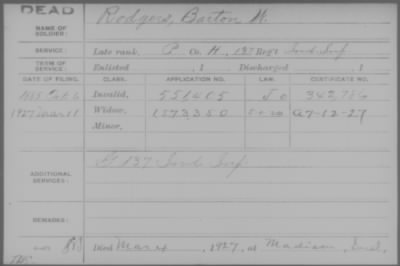 DEAD
Rodgers, Barton W.
NAME OF SOLDIER:
SERVICE: Late rank, P Co. H, 137 Reg't Ind Inf
TERM OF SERVICE: Enlisted , 1 Discharged , 1
DATE OF FILING. CLASS. APPLICATION NO. LAW. CERTIFICATE NO.
1885 Oct 6 Invalid, 551405 342786
1927 Mar 11 Widow, 1573350 A7-12-27
Minor,
ADDITIONAL SERVICES: F 137 Ind Inf
REMARKS:
Died Mar 4, 1927, at Madison, Ind.